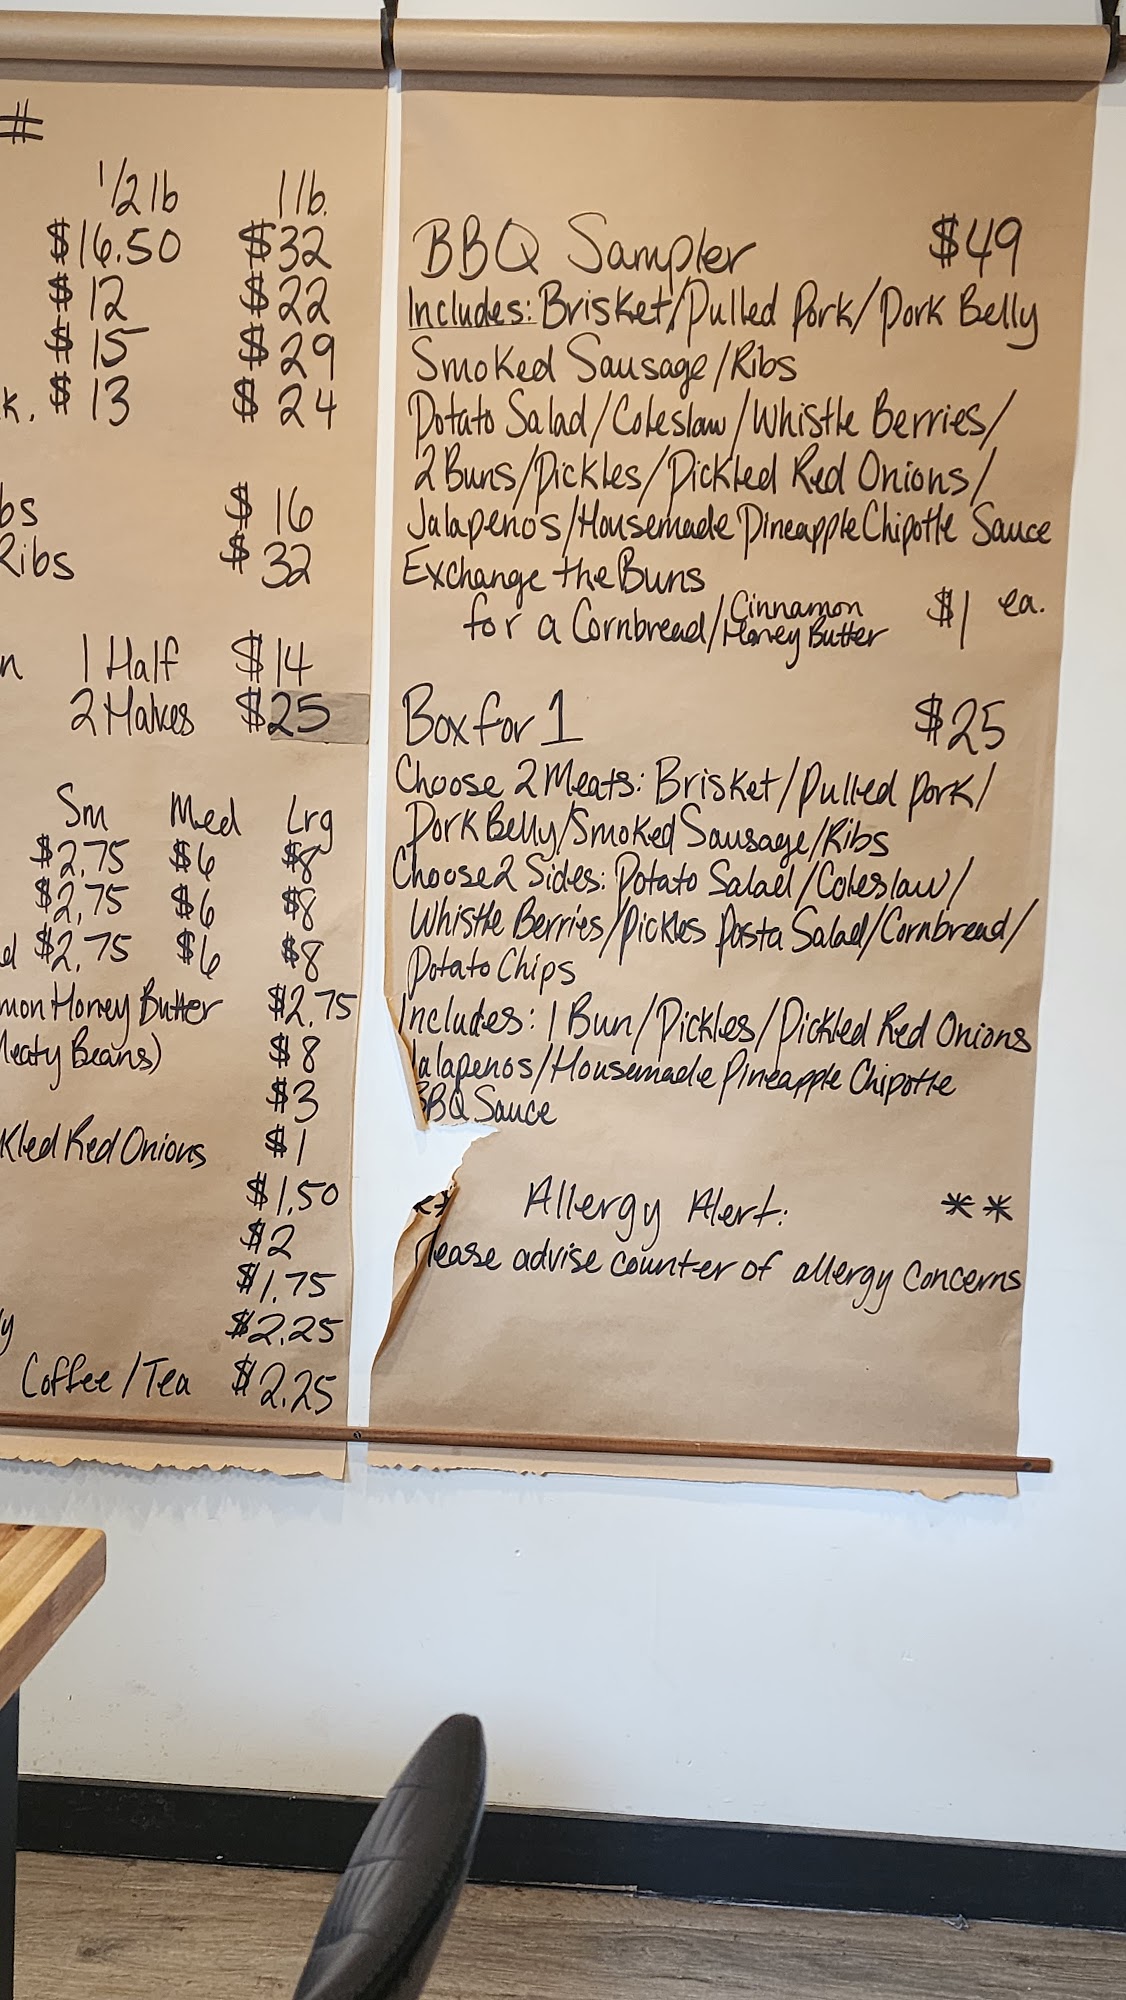 #
1/2 lb 1 lb.
$16.50 $32
$12 $22
$15 $29
k. $13 $24
bs $16
Ribs $32
n 1 Half $14
2 Halves $25
Sm Med Lrg
$2.75 $6 $8
$2.75 $6 $8
d $2.75 $6 $8
mon Honey Butter $2.75
Meaty Beans) $8
$3
kled Red Onions $1
$1.50
$2
$1.75
y $2.25
Coffee/Tea $2.25
BBQ Sampler $49
Includes: Brisket/Pulled Pork/Pork Belly
Smoked Sausage/Ribs
Potato Salad/Coleslaw/Whistle Berries/
2 Buns/Pickles/Pickled Red Onions/
Jalapenos/Housemade Pineapple Chipotle Sauce
Exchange the Buns
for a Cornbread/Cinnamon Honey Butter $1 ea.
Box for 1 $25
Choose 2 Meats: Brisket/Pulled Pork/
Pork Belly/Smoked Sausage/Ribs
Choose 2 Sides: Potato Salad/Coleslaw/
Whistle Berries/Pickles Pasta Salad/Cornbread/
Potato Chips
Includes: 1 Bun/Pickles/Pickled Red Onions
Jalapenos/Housemade Pineapple Chipotle
BBQ Sauce
** Allergy Alert: **
Please advise counter of allergy concerns